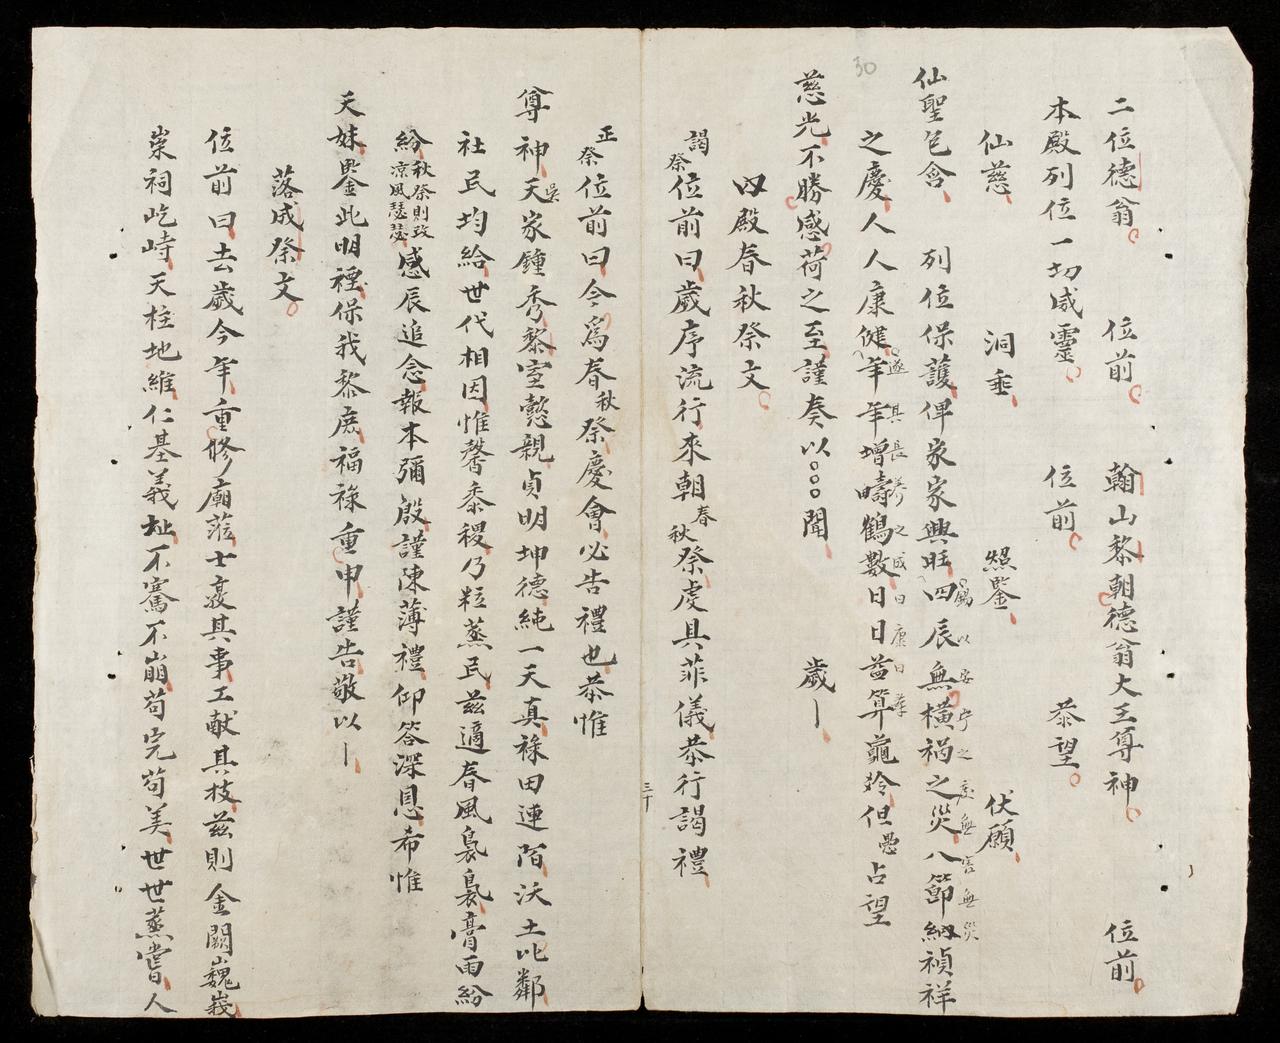 30
二位德翁 位前 翰山黎朝德翁大王尊神 位前
本殿列位一切咸靈 位前 恭望
仙慈 洞垂 照鑒 伏願
仙聖包含 列位保護俾家家興旺四辰無橫禍之災八節納禎祥
錫以安宁之慶無害無災
之慶人人康健年年增疇鶴數日日益算龜齡但愚占望
遂其長養之成日康日
慈光不勝感荷之至謹奏以○○○聞 歲
內殿春秋祭文
謁祭位前曰歲序流行來朝春秋祭虔具菲儀恭行謁禮
三十
正祭位前曰今爲春秋祭慶會必告禮也恭惟
尊神天家鍾秀黎室懿親貞明坤德純一天真祿田連陌沃土比鄰
吳
社民均給世代相因惟馨黍稷乃粒蒸民茲適春風裊裊膏雨紛
紛秋祭則改凉風瑟瑟感辰追念報本彌殷謹陳薄禮仰答深恩希惟
天妹鑒此明禋保我黎庶福祿重申謹告敬以
落成祭文
位前曰去歲今年重修廟蒞士衮其事工献其技茲則金闕巍峩
崇祠屹峙天柱地維仁基義址不騫不崩苟完苟美世世蒸嘗人